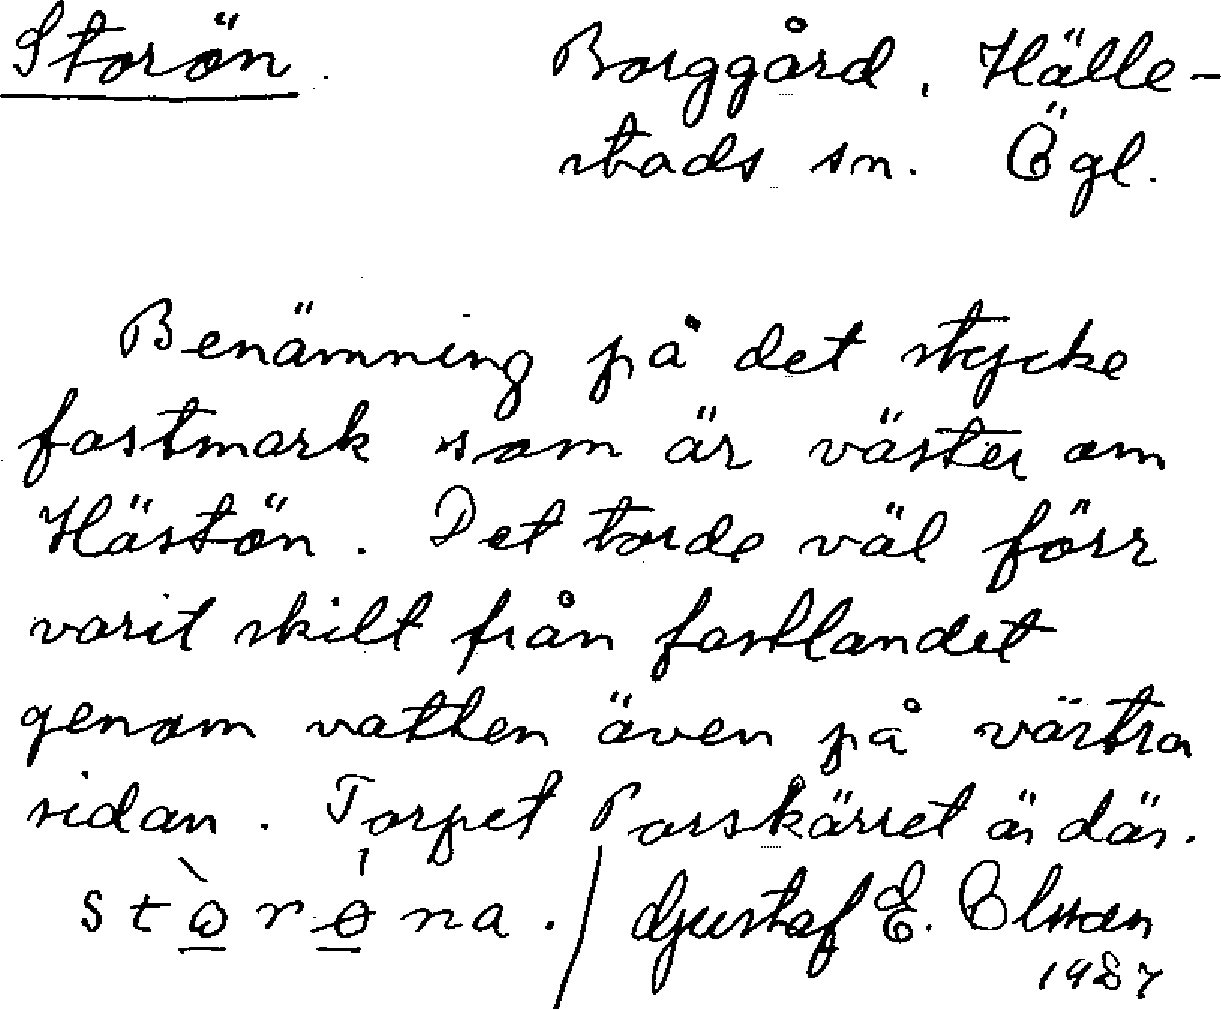 Storön. Borggård, Hälle-
stads sn. Ögl.
Benämning på det stycke
fastmark som är väster om
Hästön. Det torde väl förr
varit skilt från fastlandet
genom vatten även på västra
sidan. Torpet Porskärret är där.
stòrǿna. / Gustaf E. Olsson
1927